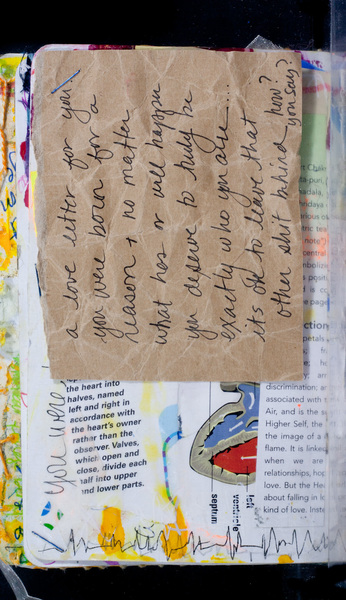 a love letter for you!
you were born for a
reason + no matter
what has or will happen
you deserve to truly be
exactly who you are....
its ok to leave that
other shit behind how?
you say?
you were
the heart into
halves, named
left and right in
accordance with
the heart's owner
rather than the
observer. Valves,
which open and
close, divide each
half into upper
and lower parts.
left
ventricle
septum
discrimination;
associated with
Air, and is the se
Higher Self, the
the image of a
flame. It is linke
when we are
relationships, hop
love. But the Hea
about falling in l
kind of love. Inste